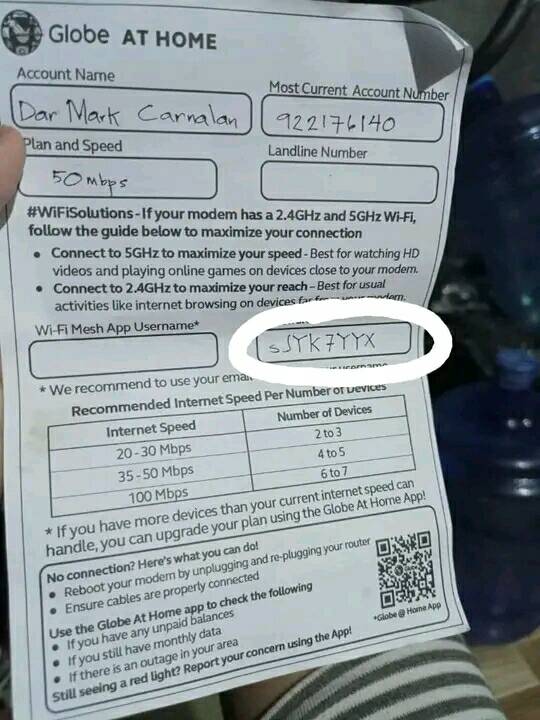 Globe AT HOME
Account Name
Most Current Account Number
Dar Mark Carnalan
922176140
Plan and Speed
Landline Number
50 mbps
#WiFiSolutions - If your modem has a 2.4GHz and 5GHz Wi-Fi,
follow the guide below to maximize your connection
• Connect to 5GHz to maximize your speed - Best for watching HD
videos and playing online games on devices close to your modem.
• Connect to 2.4GHz to maximize your reach - Best for usual
activities like internet browsing on devices far from your modem.
Wi-Fi Mesh App Username*
sJYK7YYX
* We recommend to use your email
username
Recommended Internet Speed Per Number of Devices
Internet Speed
Number of Devices
20 - 30 Mbps
2 to 3
35 - 50 Mbps
4 to 5
100 Mbps
6 to 7
* If you have more devices than your current internet speed can
handle, you can upgrade your plan using the Globe At Home App!
No connection? Here's what you can do!
• Reboot your modem by unplugging and re-plugging your router
• Ensure cables are properly connected
Use the Globe At Home app to check the following
• If you have any unpaid balances
• If you still have monthly data
• If there is an outage in your area
Still seeing a red light? Report your concern using the App!
*Globe @ Home App